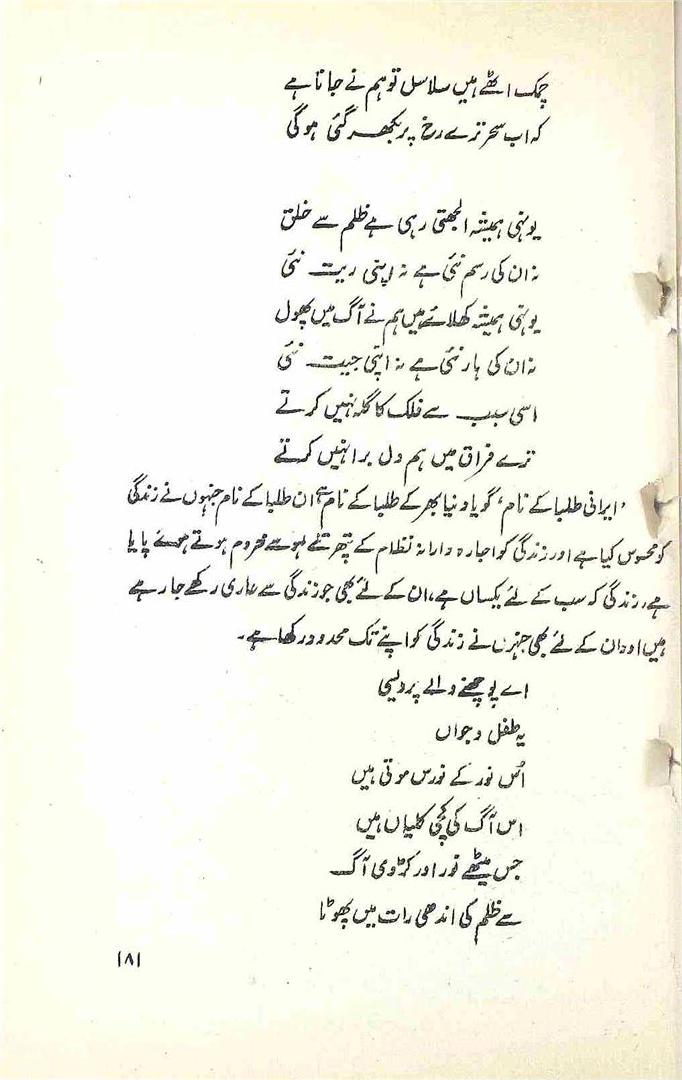 چمک اٹھے ہیں سلاسل تو ہم نے جانا ہے
کہ اب سحر ترے رخ پر بکھر گئی ہوگی
یونہی ہمیشہ الجھتی رہی ہے ظلم سے خلق
نہ ان کی رسم نئی ہے نہ اپنی ریت نئی
یونہی ہمیشہ کھلائے ہیں ہم نے آگ میں پھول
نہ ان کی ہار نئی ہے نہ اپنی جیت نئی
اسی سبب سے فلک کا گلہ نہیں کرتے
ترے فراق میں ہم دل برا نہیں کرتے
’ایرانی طلبا کے نام‘ گویا دنیا بھر کے طلبا کے نام ہے ان طلبا کے نام جنہوں نے زندگی
کو محسوس کیا ہے اور زندگی کو اجارہ دارانہ نظام کے پتھر تلے ہوسے محروم ہوتے ہوئے پایا
ہے، زندگی کہ سب کے لئے یکساں ہے، ان کے لئے بھی جو زندگی سے عاری رکھے جا رہے
ہیں اور ان کے لئے بھی جنہوں نے زندگی کو اپنے تک محدود رکھا ہے۔
اے پوچھنے والے پردیسی
یہ طفل و جواں
اُس نور کے نورس موتی ہیں
اس آگ کی کچی کلیاں ہیں
جس میٹھے نور اور کڑوی آگ
سے ظلم کی اندھی رات میں پھوٹا
۱۸۱